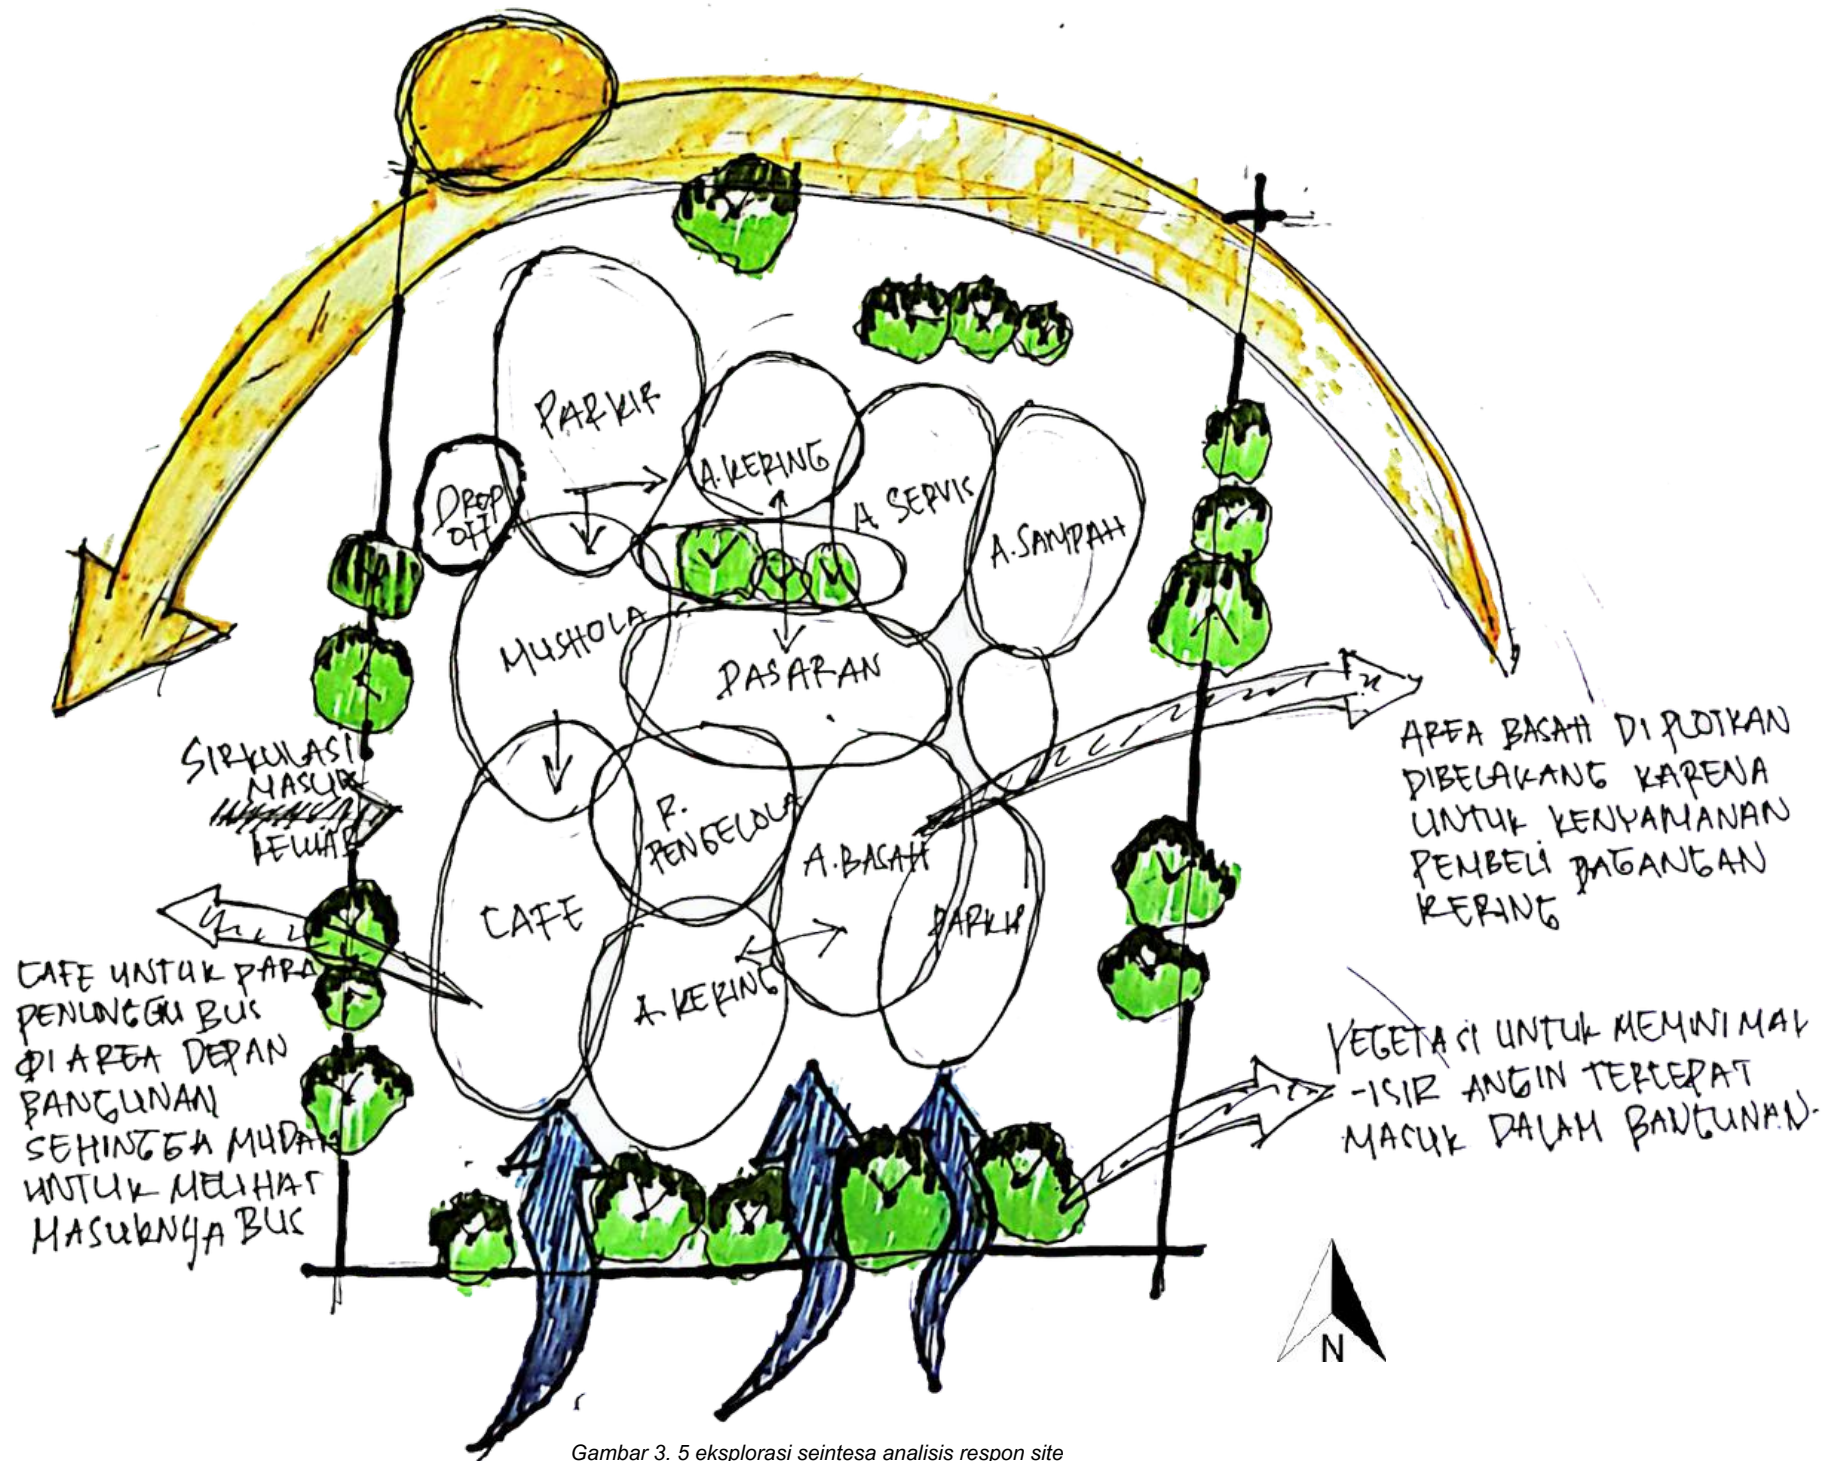 PARKIR
A. KERING
DROP
OFF
A. SERVIS
A. SAMPAH
MUSHOLA
DASARAN
SIRKULASI
MASUK
KELUAR
R.
PENGELOLA
A. BASAH
CAFE
PARKIR
A. KERING
AREA BASAH DIPLOTKAN
DIBELAKANG KARENA
UNTUK KENYAMANAN
PEMBELI DAGANGAN
KERING
CAFE UNTUK PARA
PENUNGGU BUS
DI AREA DEPAN
BANGUNAN
SEHINGGA MUDAH
UNTUK MELIHAT
MASUKNYA BUS
VEGETASI UNTUK MEMINIMAL
-ISIR ANGIN TERCEPAT
MASUK DALAM BANGUNAN.
N
Gambar 3. 5 eksplorasi seintesa analisis respon site